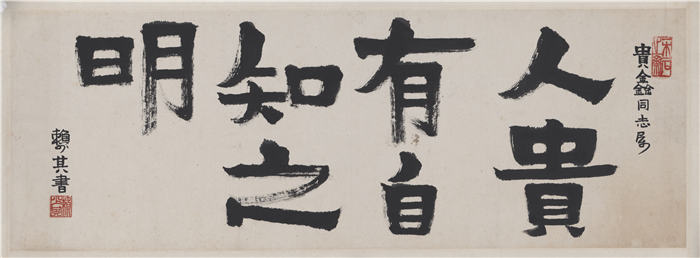 貴鑫同志属
人貴
有自
知之
明
賴少其書